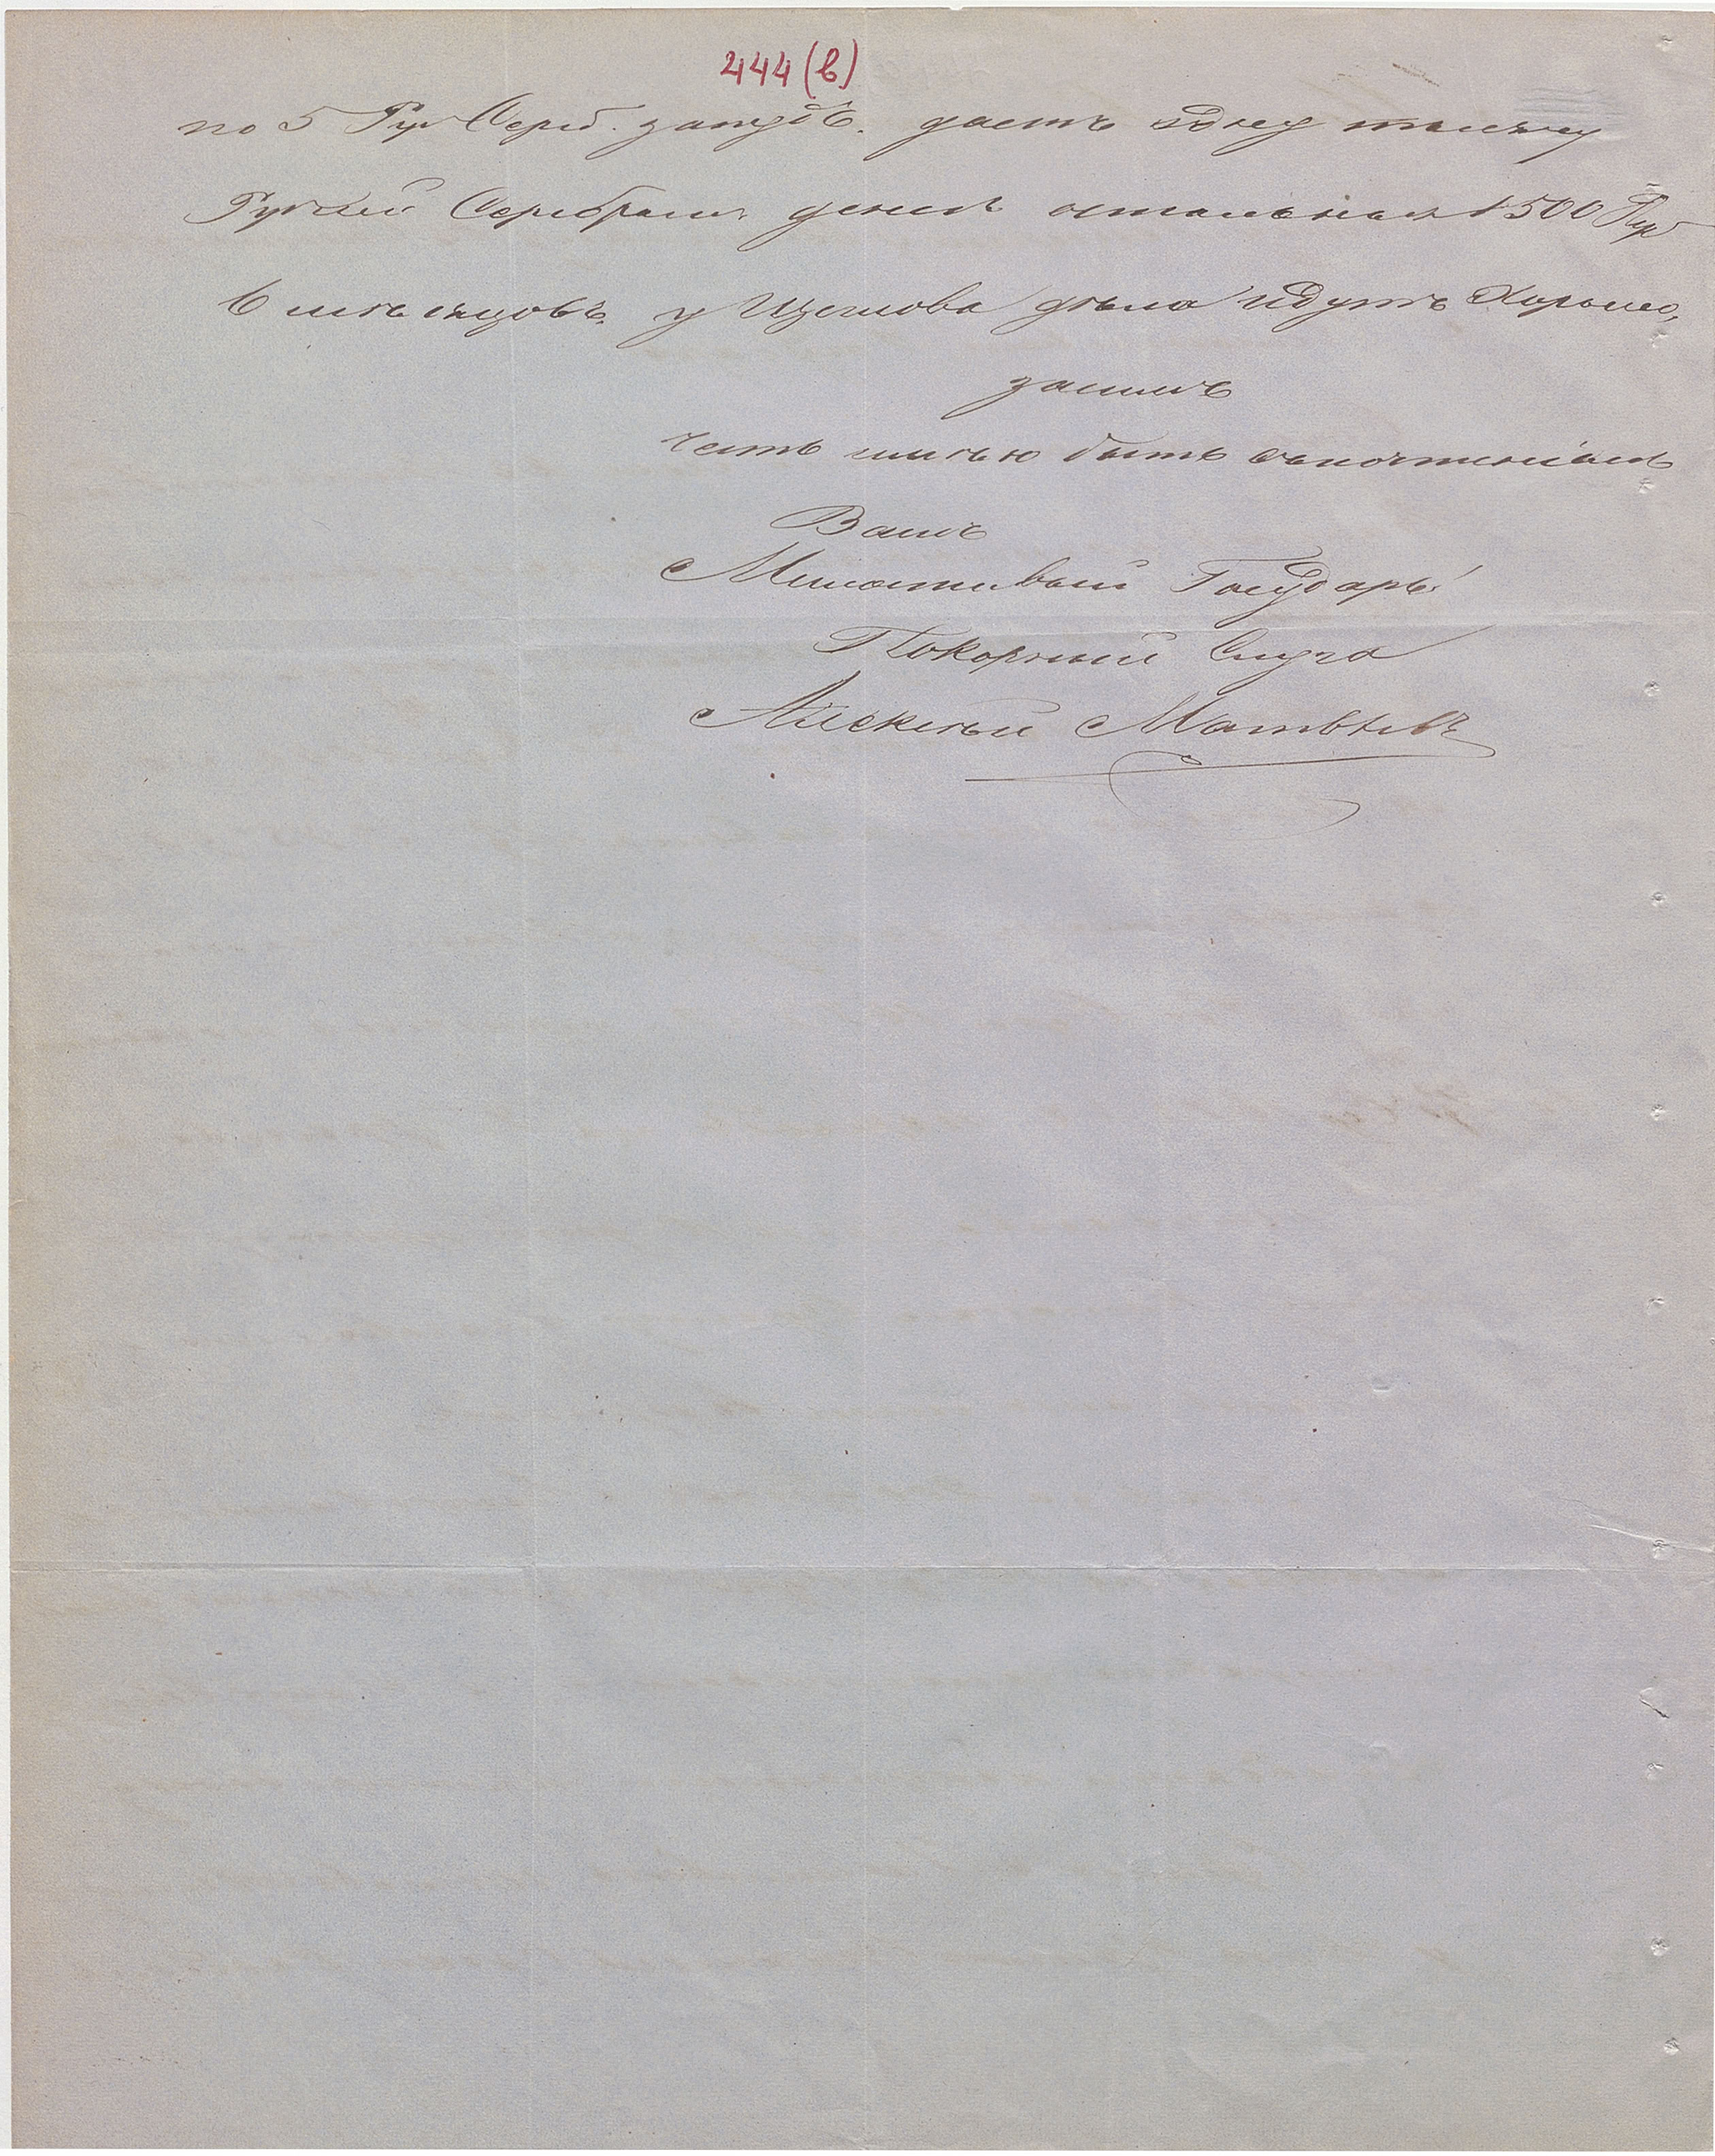 444 (в)
по 5 Руб Сереб. за пудъ. даетъ одну тысячу
Рублей Серебромъ денегъ остальныя 1500 Руб
6 мѣсяцовъ. у дѣла идутъ Хорошо,
засимъ
честь имѣю быть съ почтеніемъ
Вашъ
Милостивый Государь!
Покорный Слуга
Алексѣй Матвѣевъ